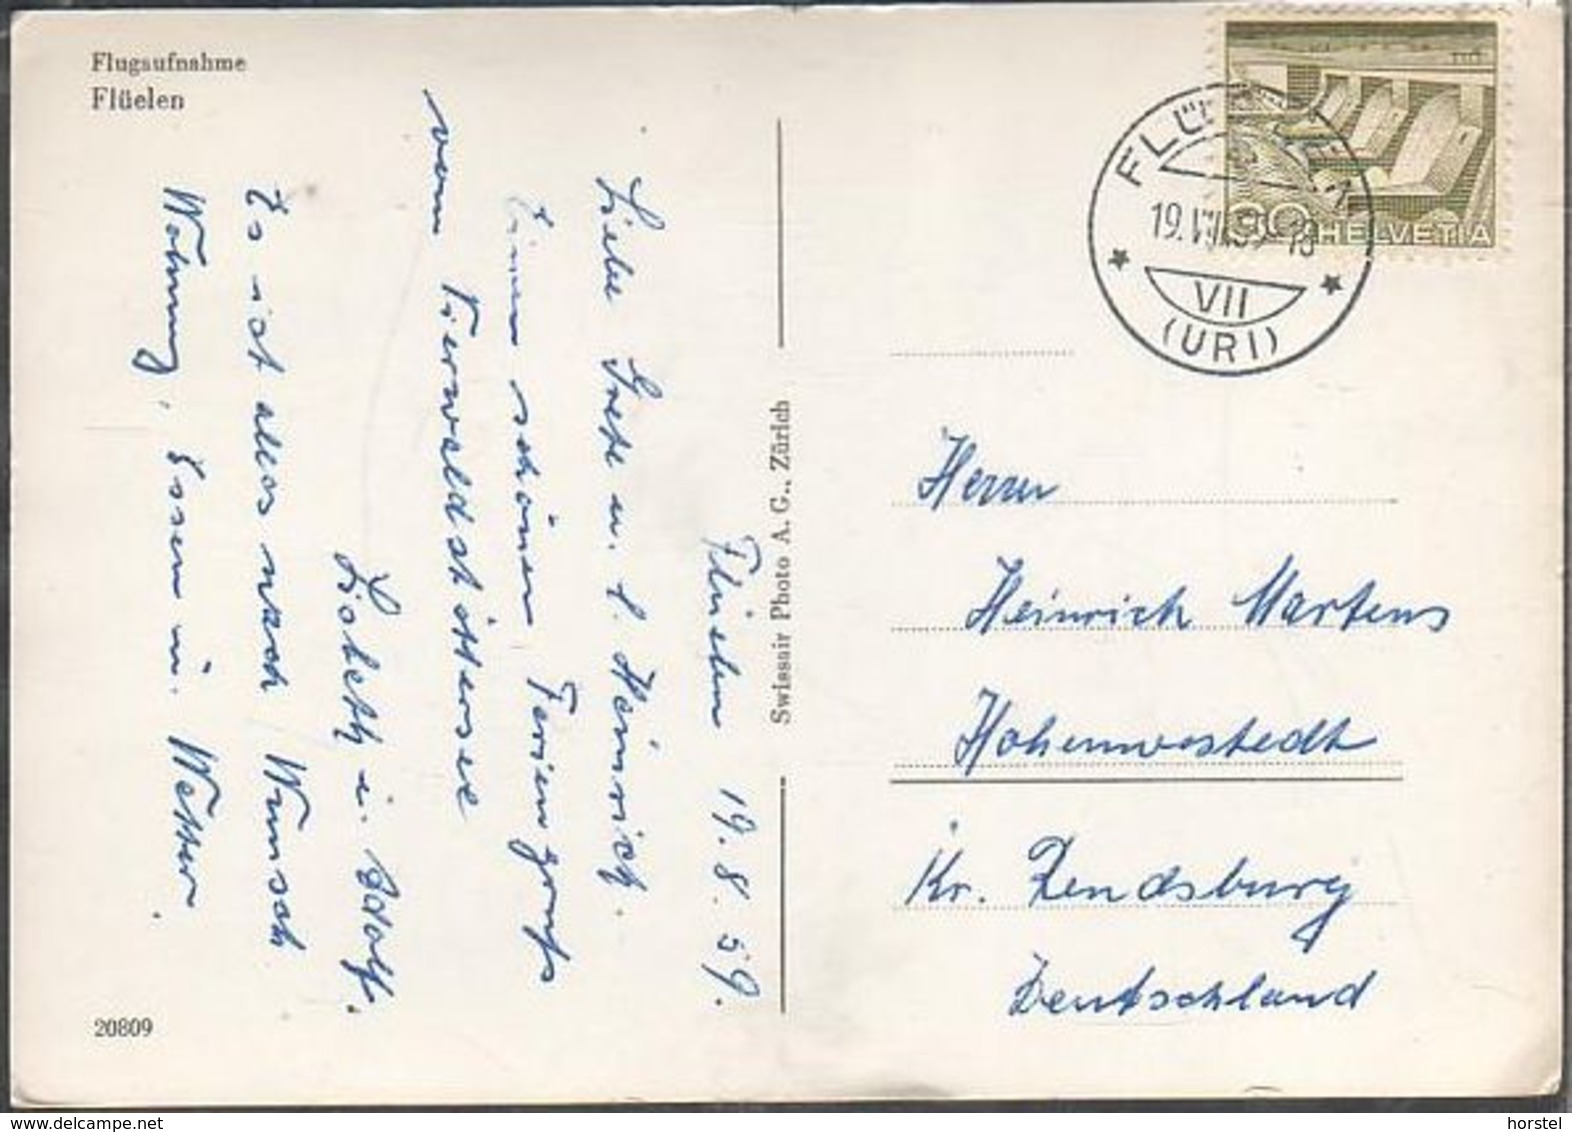 Flugaufnahme
Flüelen
Flüelen 19.8.59.
Liebe Grete u. l. Heinrich.
Einen schönen Feriengruß
vom Vierwaldstättersee
Lisbeth u. Adolf.
Es ist alles nach Wunsch
Wohnung, Essen u. Wetter.
20809
Swissair Photo A. G., Zürich
HELVETIA
19.VIII.59-18
VII
(URI)
Herrn
Heinrich Martens
Hohenwestedt
Kr. Rendsburg
Deutschland
horstel